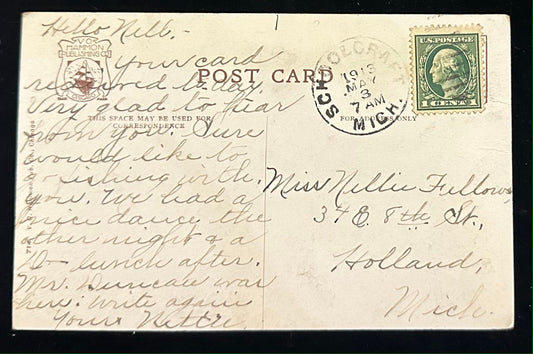 Hello Nell -
Your card
received today.
Very glad to hear
from you. Sure
would like to
go fishing with
you. We had a
nice dance the
other night & a
lunch after.
Mr. Duncan was
here. Write again
Yours Nettie
V.O.
HAMMON
PUBLISHING CO.
POST CARD
THIS SPACE MAY BE USED FOR
CORRESPONDENCE
FOR ADDRESS ONLY
SCHOOLCRAFT
MICH.
MAY
3
7 AM
U.S. POSTAGE
1 CENT 1
Miss Nellie Fellows,
34 E. 8th St.,
Holland,
Mich.